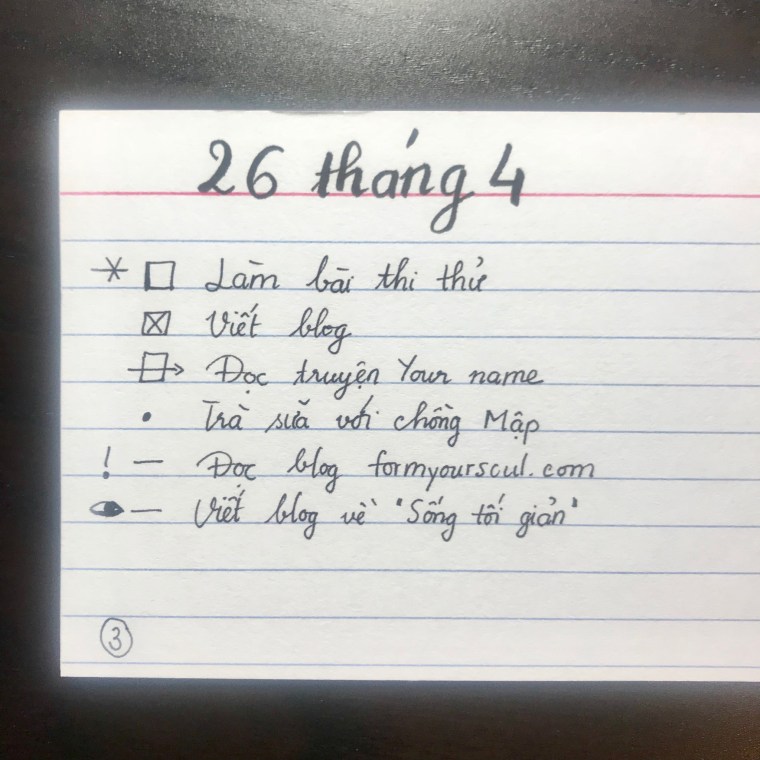 26 tháng 4
* □ Làm bài thi thử
☒ Viết blog
□→ Đọc truyện Your name
• Trà sữa với chồng Mập
! — Đọc blog formyoursoul.com
— Viết blog về "Sống tối giản"
3